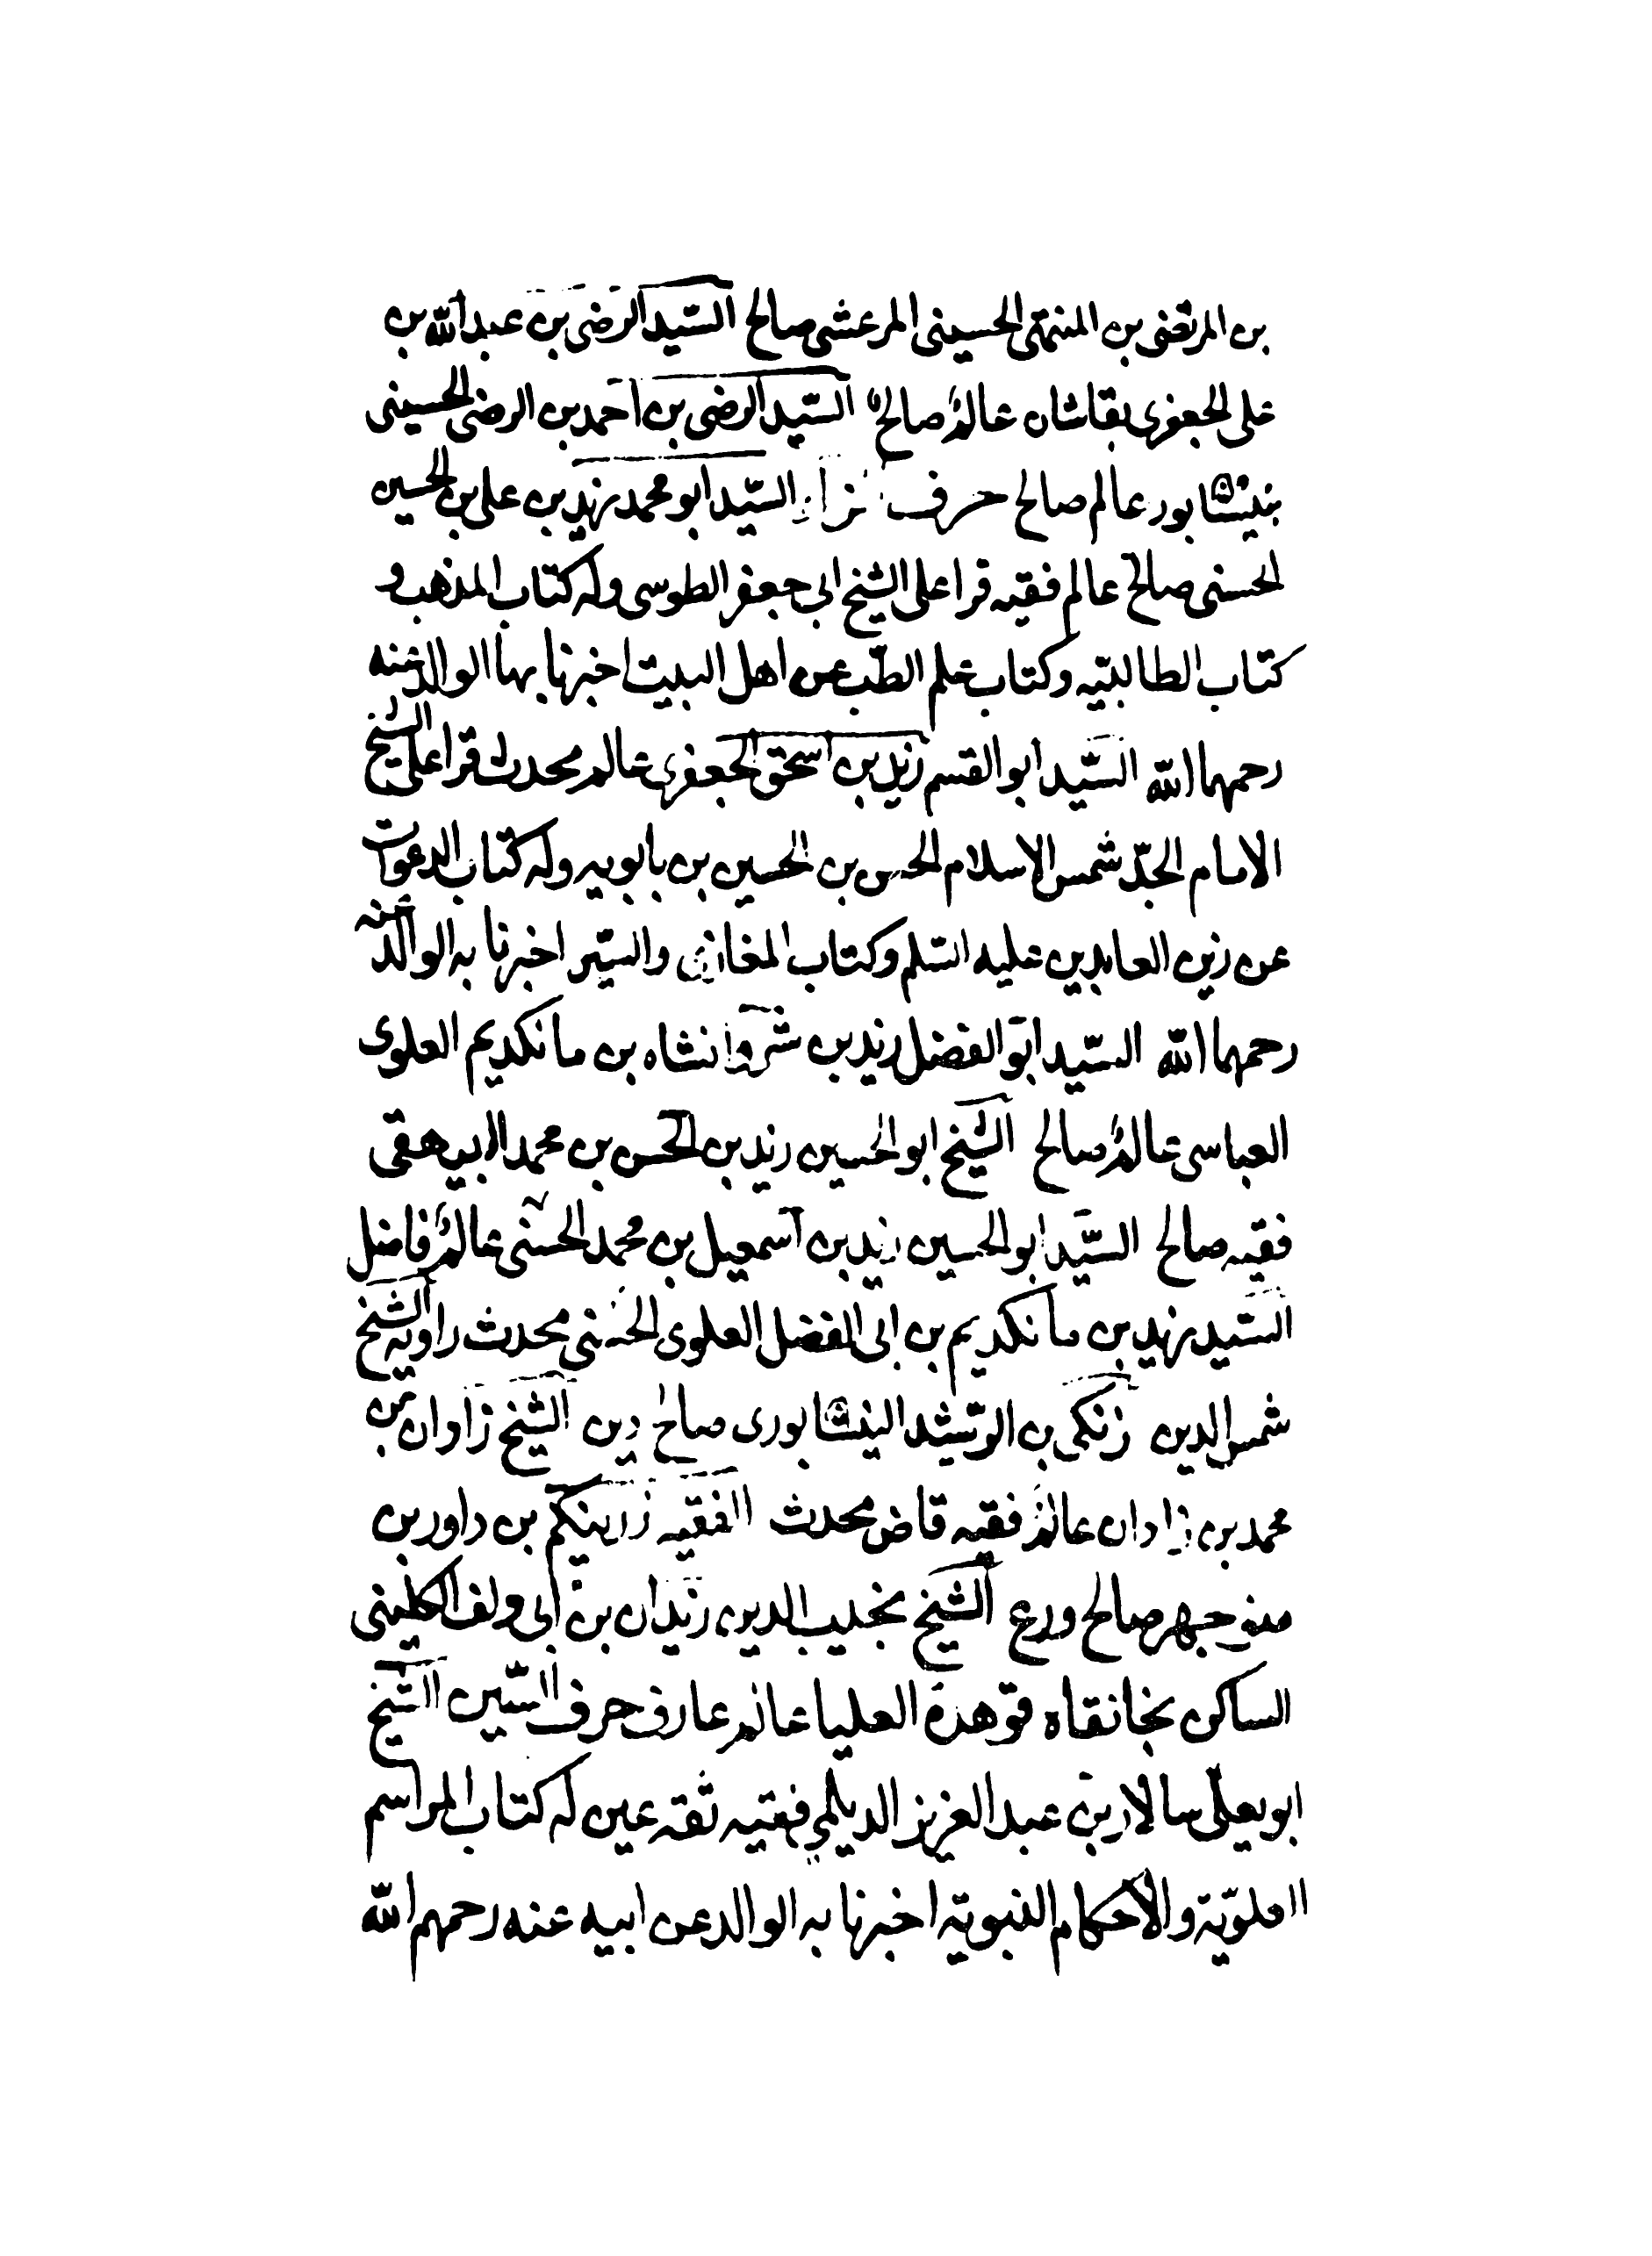 بن المرتضى بن المنتهى الحسينى المرعشى صالح السّيد الرضى بن عبد اللّه بن
على الجعفرى بقاشان عالم صالح السّيد الرضى بن احمد بن الرضى الحسينى
بنيشابور عالم صالح حرف الزاء السّيد ابو محمد زيد بن على بن الحسين
الحسنى صالح عالم فقيه قرا على الشيخ ابى جعفر الطوسى وله كتاب المذهب و
كتاب الطالبيّه وكتاب علم الطّب عن اهل البيت اخبرنا بها الوالد عنه
رحمهما اللّه السّيد ابو القسم زيد بن اسحق الجعفرى عالم محدث قرا على الشيخ
الامام الجدّ شمس الاسلام الحسن بن الحسين بن بابويه وله كتاب الدعوات
عن زين العابدين عليه السّلم وكتاب المغازى والسّير اخبرنا به الوالد عنه
رحمهما اللّه السّيد ابو الفضل زيد بن شروانشاه بن مانكديم العلوى
العباسى عالم صالح الشيخ ابو الحسين زيد بن الحسن بن محمد البيهقى
فقيه صالح السّيد ابو الحسين زيد بن اسمعيل بن محمد الحسنى عالم فاضل
السّيد زيد بن مانكديم بن ابى الفضل العلوى الحسنى محدث راويه الشيخ
شمس الدين زنكى بن الرّشيد النيشابورى صالح دين الشيخ زادان بن
محمد بن زادان عالم فقيه قاض محدث الفقيه زرينكم بن داور بن
منوجهر صالح ورع الشيخ نجيب الدين زيدان بن ابى دلف الكلينى
الساكن بخانقاه قوهدة العليا عالم عارف حرف السّين الشيخ
ابو يعلى سالار بن عبد العزيز الديلمى فقيه ثقه عين له كتاب المراسم
العلويّة والأحكام النبويّه اخبرنا به الوالد عن ابيه عنه رحمهم اللّه